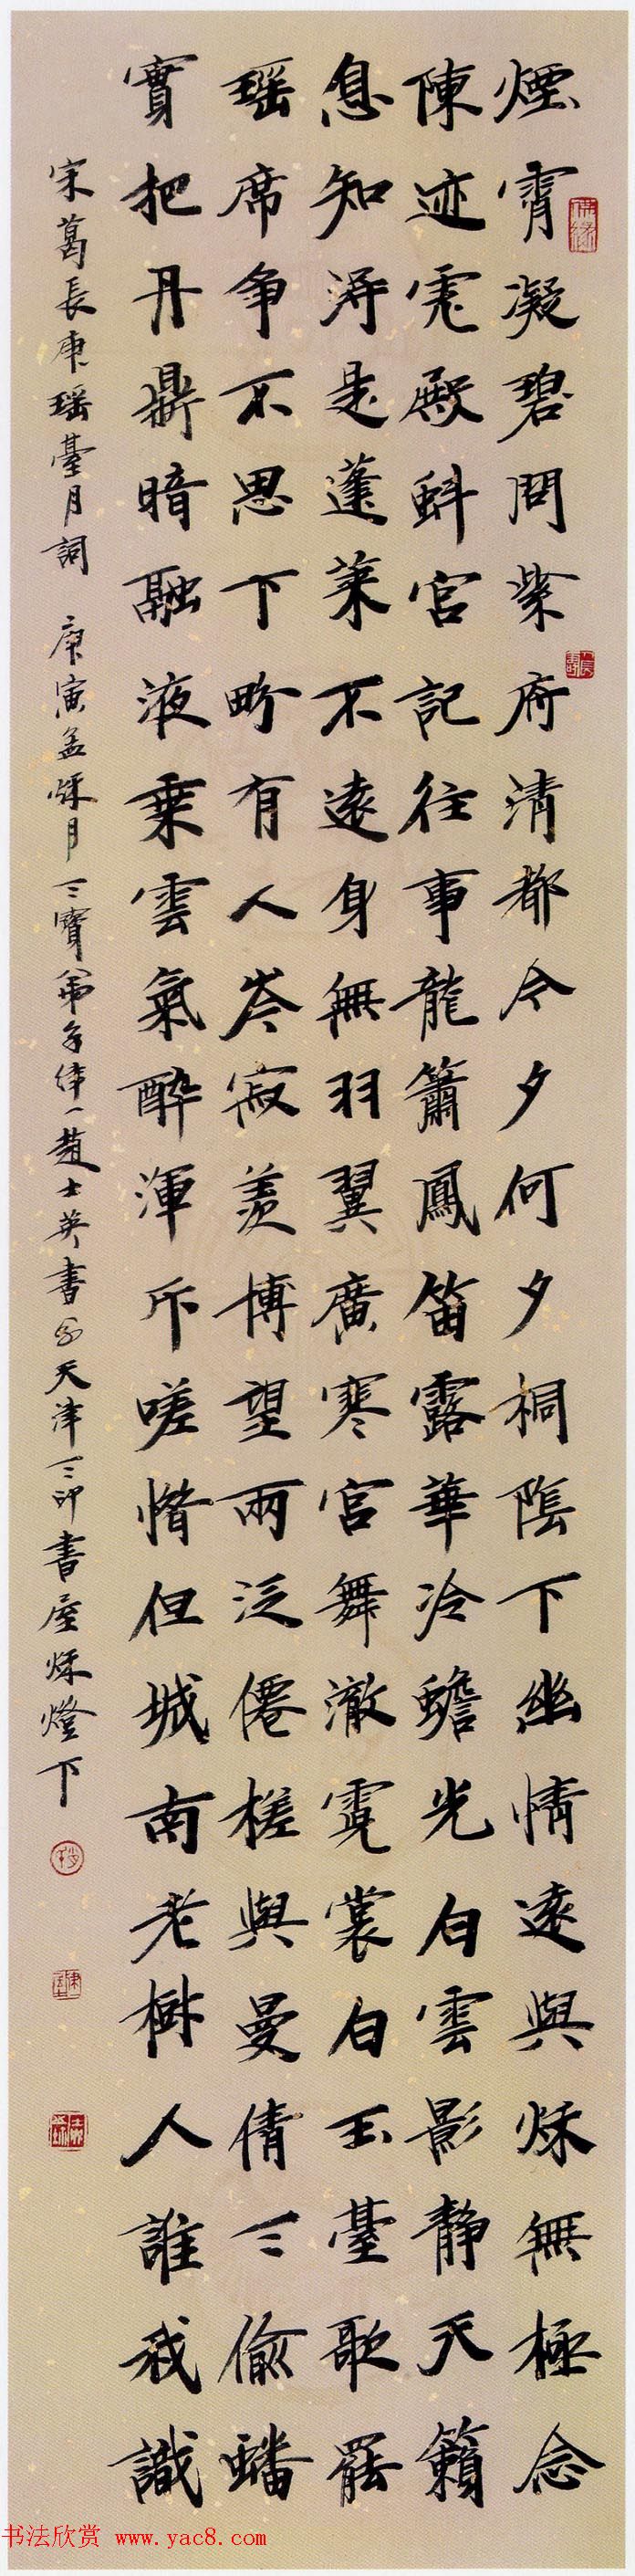 煙霄凝碧問紫府清都今夕何夕桐陰下幽情遠與秌無極念
陳迹虎殿蚪宮記往事龍簫鳳笛露華冷蟾光白雲影靜天籟
息知淂是蓬萊不遠身無羽翼廣寒宮舞澈霓裳白玉臺歌罷
瑶席争不思下畍有人岑寂羨博望兩泛僊槎與曼倩三偷蟠
實把丹鼎暗融液乗雲氣醉渾斥嗟惜但城南老樹人誰我識
宋葛長庚瑶臺月詞 庚寅孟秌月三寶弟子律一趙士英書於天津三印書屋秌燈下
书法欣赏 www.yac8.com